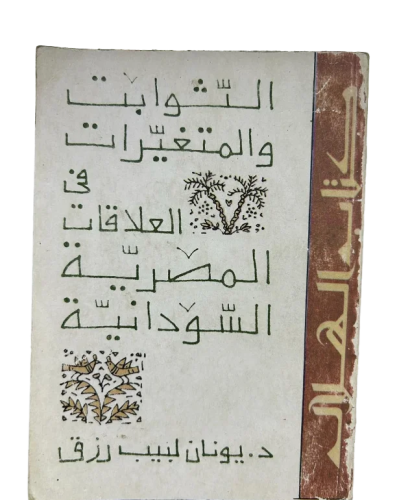 الثّوابت
والمتغيّرات
فى
العلاقات
المصريّة
السّودانيّة
د. يونان لبيب رزق
كتاب الهلال